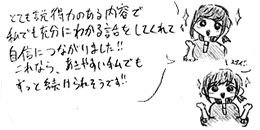 とても説得力のある内容で
私でも充分にわかる話をしてくれて
自信につながりました!!
これなら、あきやすい私でも
ずっと続けられそうです!!